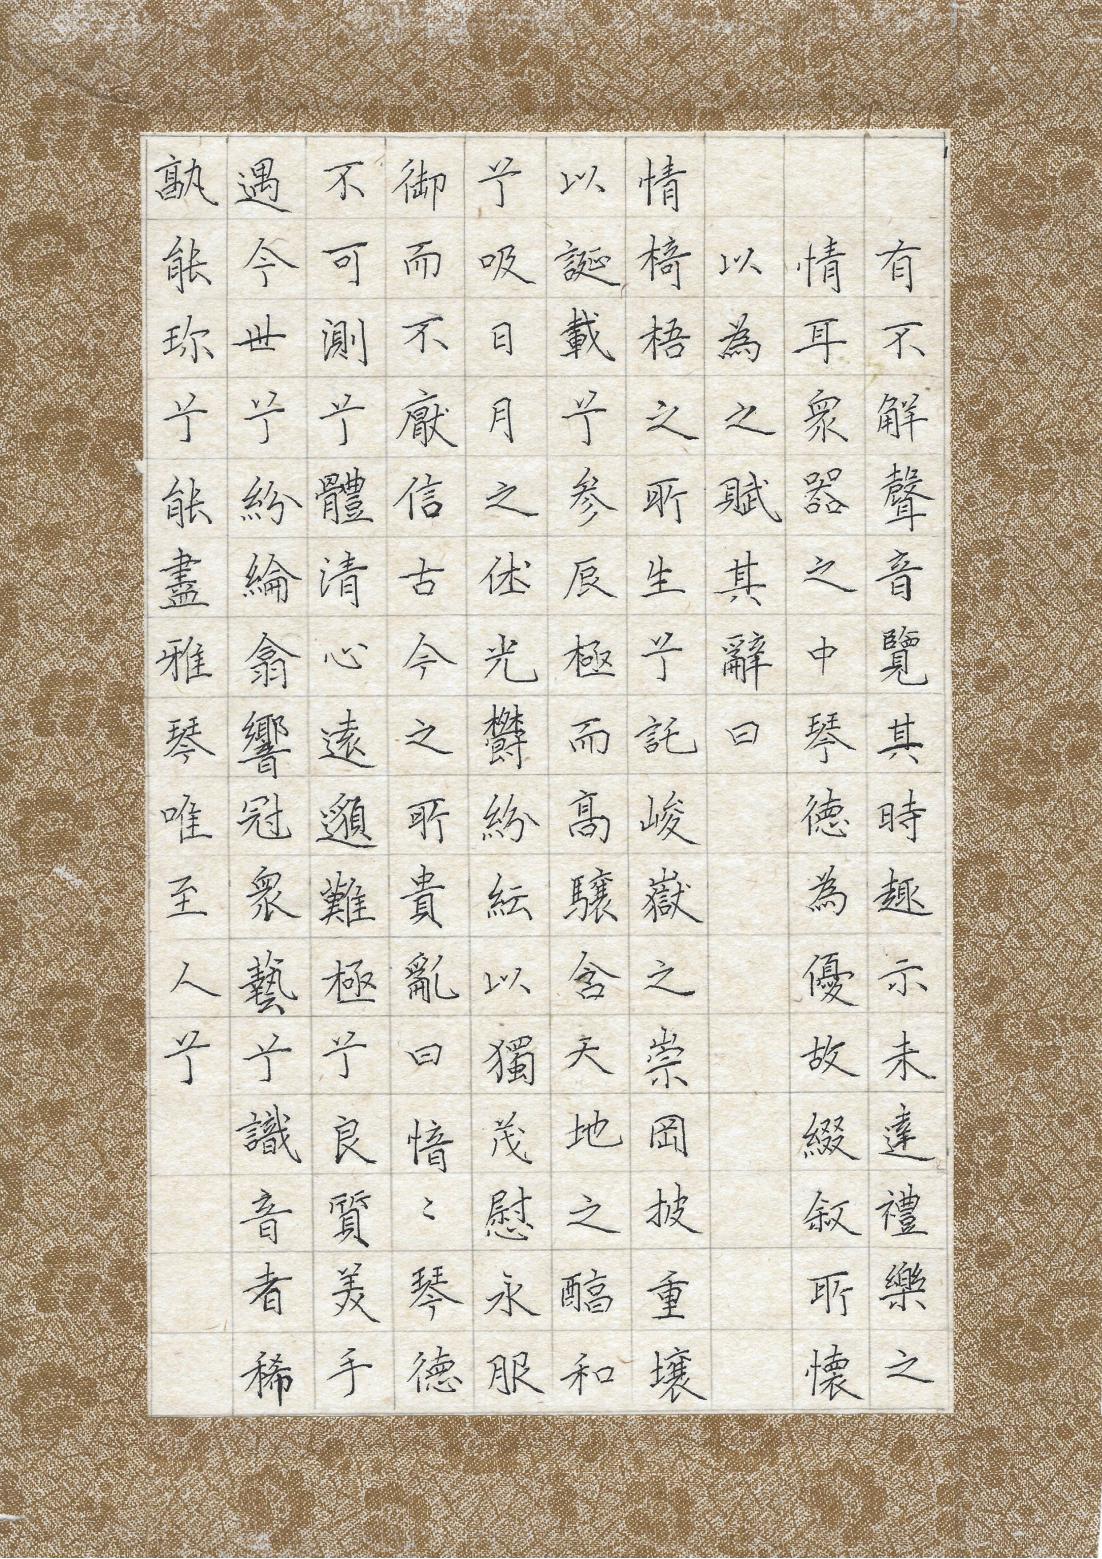 有不解聲音覽其時趣示未達禮樂之
情耳衆器之中琴德為優故綴敘所懷
以為之賦其辭曰
情椅梧之所生兮託峻嶽之崇岡披重壤
以誕載兮參辰極而高驤含天地之醕和
兮吸日月之休光鬱紛紜以獨茂慰永服
御而不厭信古今之所貴亂曰愔〻琴德
不可測兮體清心遠邈難極兮良質美手
遇今世兮紛綸翕響冠衆藝兮識音者稀
孰能珎兮能盡雅琴唯至人兮